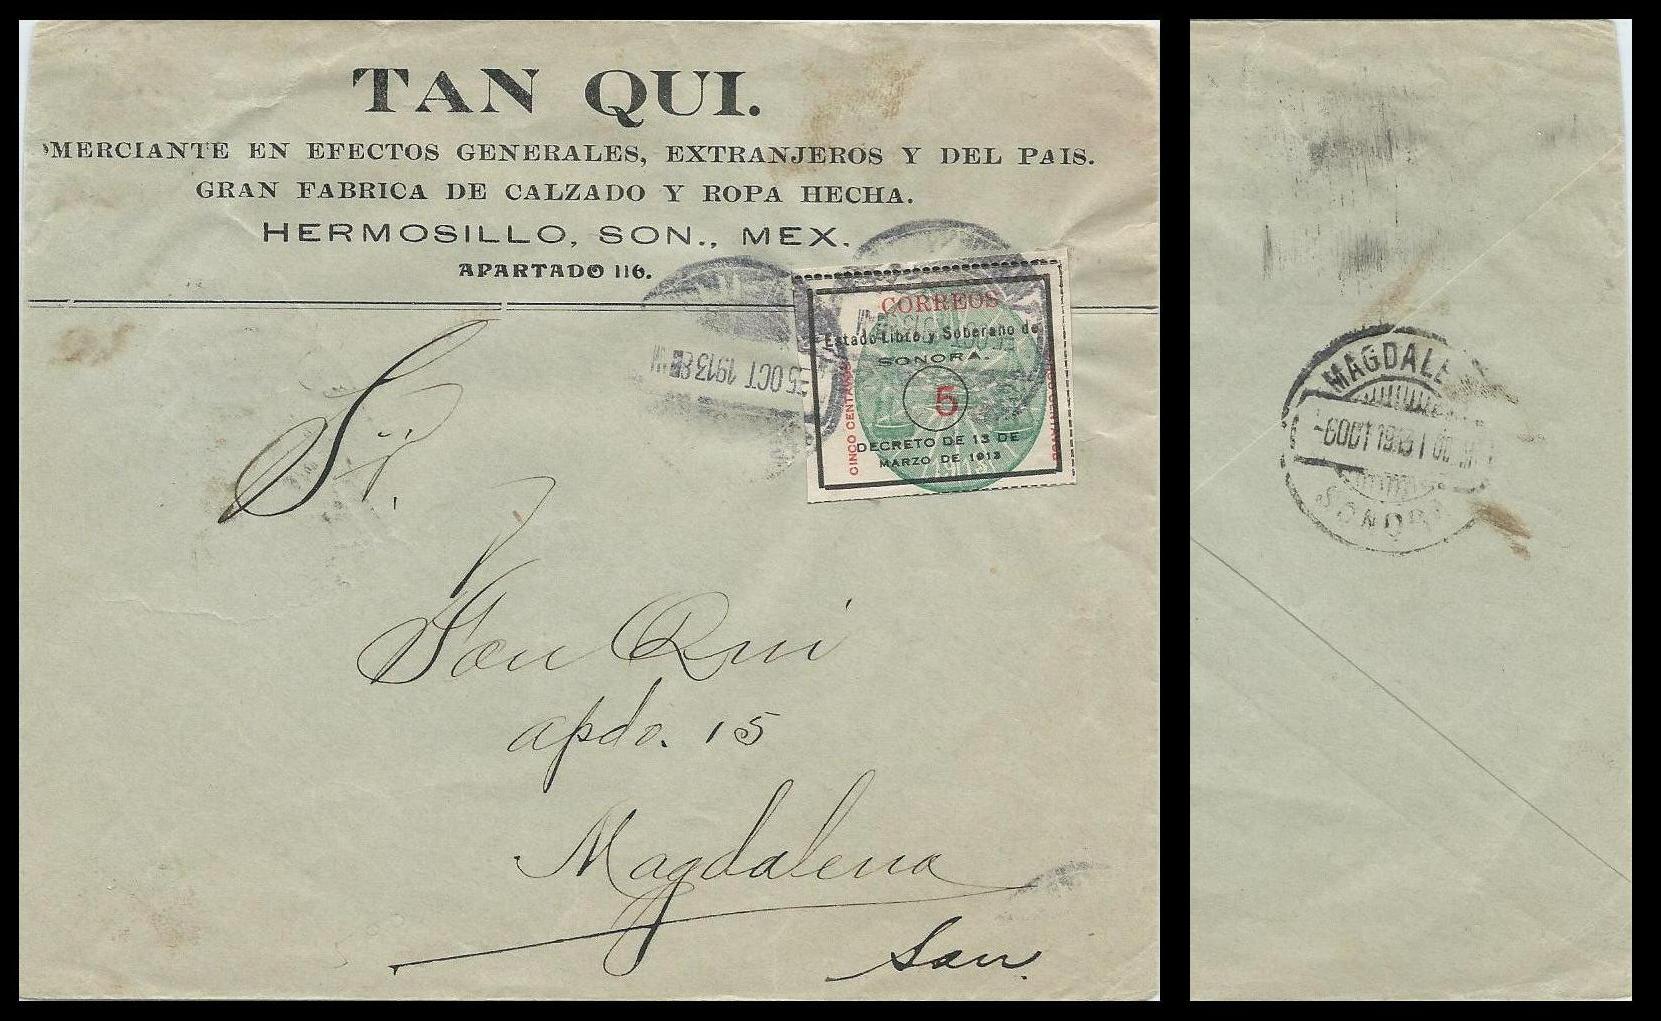 TAN QUI.
OMERCIANTE EN EFECTOS GENERALES, EXTRANJEROS Y DEL PAIS.
GRAN FABRICA DE CALZADO Y ROPA HECHA.
HERMOSILLO, SON., MEX.
APARTADO 116.
5 OCT 1913 8
CORREOS
Estado Libre y Soberano de
SONORA.
5
CINCO CENTAVOS
DECRETO DE 13 DE
MARZO DE 1913
Sr.
Fon Qui
apdo. 15
Magdalena
Son.
MAGDALE
-6 OCT 1913 1 00
SONORA